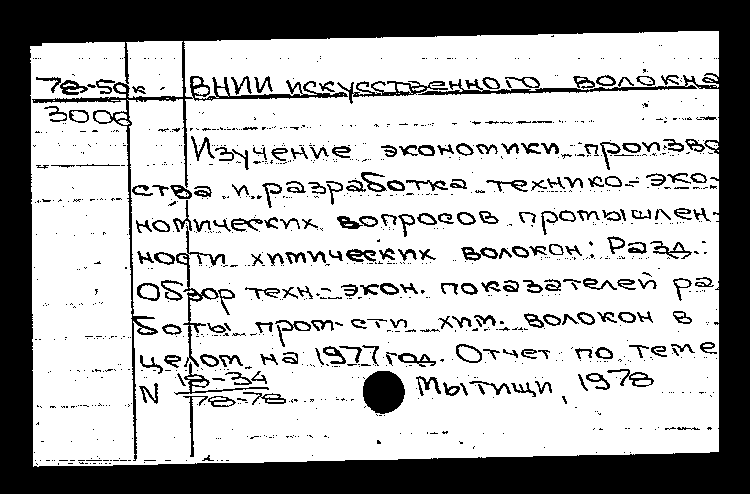 78-50к ВНИИ искусственного волокна
3006
Изучение экономики произво
ства и разработка технико-эко-
номических вопросов промышлен-
ности химических волокон: Разд.:
Обзор техн.-экон. показателей ра
боты пром-сти хим. волокон в
целом на 1977 год. Отчет по теме
N 18-34/78-78 Мытищи, 1978